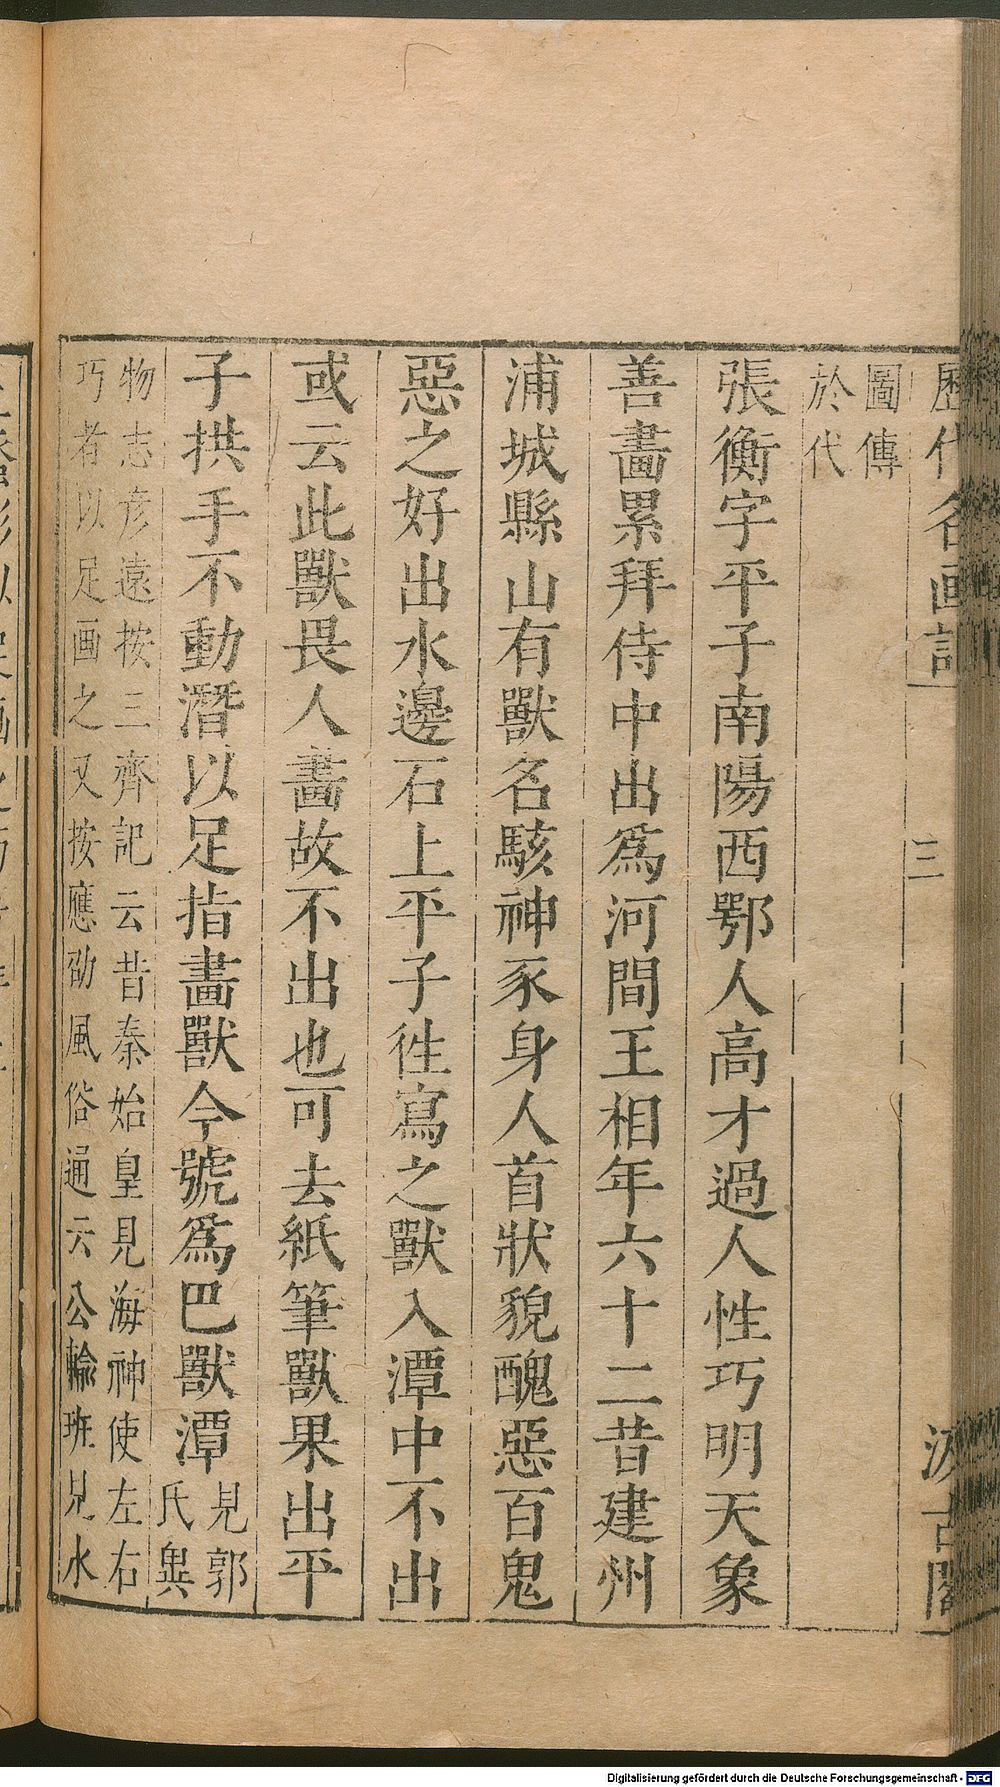 歷代名画記　三　汲古閣
圖傳
於代
張衡字平子南陽西鄂人高才過人性巧明天象
善畫累拜侍中出爲河間王相年六十二昔建州
浦城縣山有獸名駭神豕身人首狀貌醜惡百鬼
惡之好出水邊石上平子徃寫之獸入潭中不出
或云此獸畏人畫故不出也可去紙筆獸果出平
子拱手不動潛以足指畫獸今號爲巴獸潭
見郭
氏異
物志彦遠按三齊記云昔秦始皇見海神使左右
巧者以足画之又按應劭風俗通云公輸班見水
Digitalisierung gefördert durch die Deutsche Forschungsgemeinschaft - DFG